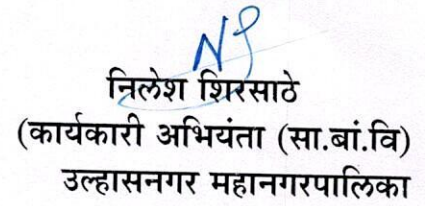 निलेश शिरसाठे
(कार्यकारी अभियंता (सा.बां.वि)
उल्हासनगर महानगरपालिका